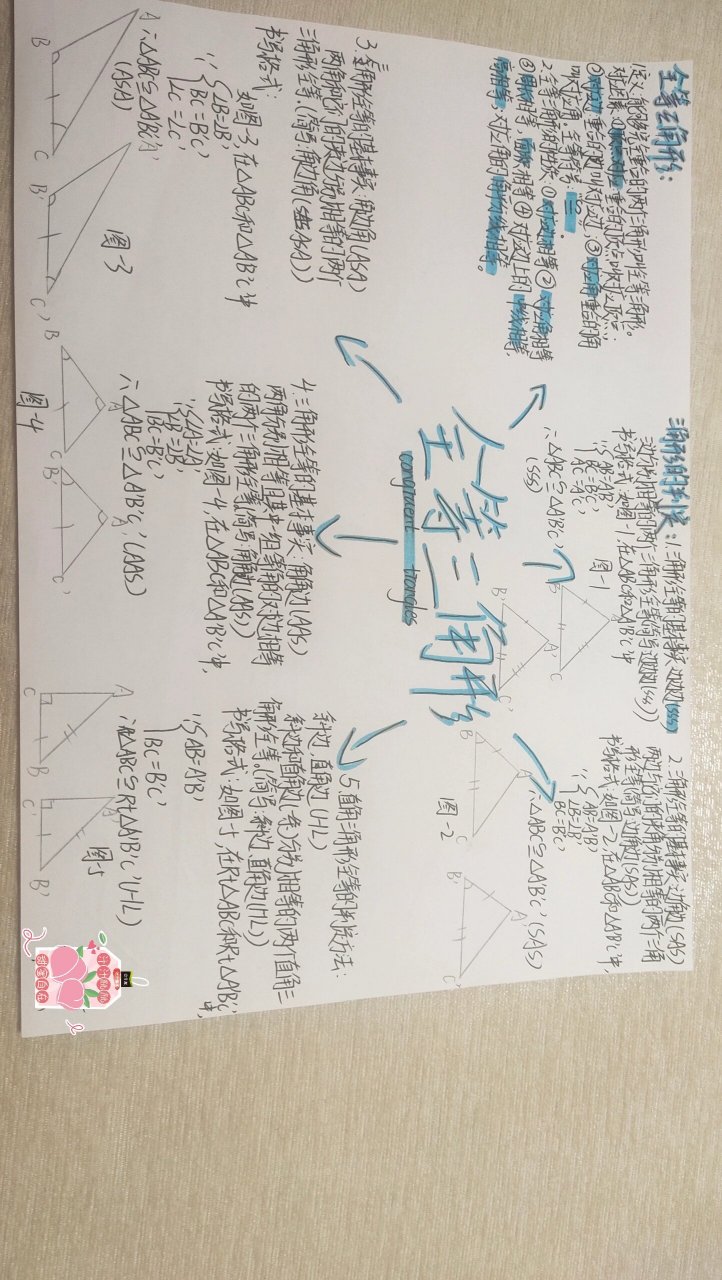 全等三角形:
1.定义:能够完全重合的两个三角形叫全等三角形。
重合的顶点叫对应顶点:
重合的边叫对应边:③对应角重合的角
叫对应角。全等符号:"≌"
2.全等三角形的性质:①对应边相等②对应角相等
③周长相等,面积相等④对应边上的中线相等,
高相等,对应角的角平分线相等。
三角形的判定:1.三角形全等的基本事实:边边边(SSS)
三边分别相等的两个三角形全等(简写:边边边(SSS))
书写格式:如图-1,在△ABC和△A'B'C'中
∵{AB=A'B'
BC=B'C'
AC=A'C'
∴△ABC≌△A'B'C'
(SSS)
图-1
B
C
B'
A'
C'
2.三角形全等的基本事实:边角边(SAS)
两边与它们的夹角分别相等的两个三角
形全等(简写:边角边(SAS))
书写格式:如图-2,在△ABC和△A'B'C'中,
∵{AB=A'B'
∠B=∠B'
BC=B'C'
∴△ABC≌△A'B'C'(SAS)
图-2
B
A
C
B'
A'
C'
全等三角形
congruent triangles
3.三角形全等的基本事实:角边角(ASA)
两角和它们的夹边分别相等的两个
三角形全等。(简写:角边角(ASA))
书写格式:
如图-3,在△ABC和△A'B'C'中
∵{∠B=∠B'
BC=B'C'
∠C=∠C'
∴△ABC≌△A'B'C'
(ASA)
图-3
A
B
C
B'
C'
4.三角形全等的基本事实:角角边(AAS)
两角分别相等且其中一组等角的对边相等
的两个三角形全等(简写:角角边(AAS))
书写格式:如图-4,在△ABC和△A'B'C'中,
∵{∠A=∠A'
∠B=∠B'
BC=B'C'
∴△ABC≌△A'B'C'(AAS)
图-4
B
A
C
B'
A'
C'
5.直角三角形全等的判定方法:
斜边,直角边(HL)
斜边和直角边(一条)分别相等的两个直角三
角形全等。(简写:斜边、直角边(HL))
书写格式:如图-5,在Rt△ABC和Rt△A'B'C'中,
∵{AB=A'B'
BC=B'C'
∴Rt△ABC≌Rt△A'B'C'(HL)
图5
A
C
B
A'
C'
B'